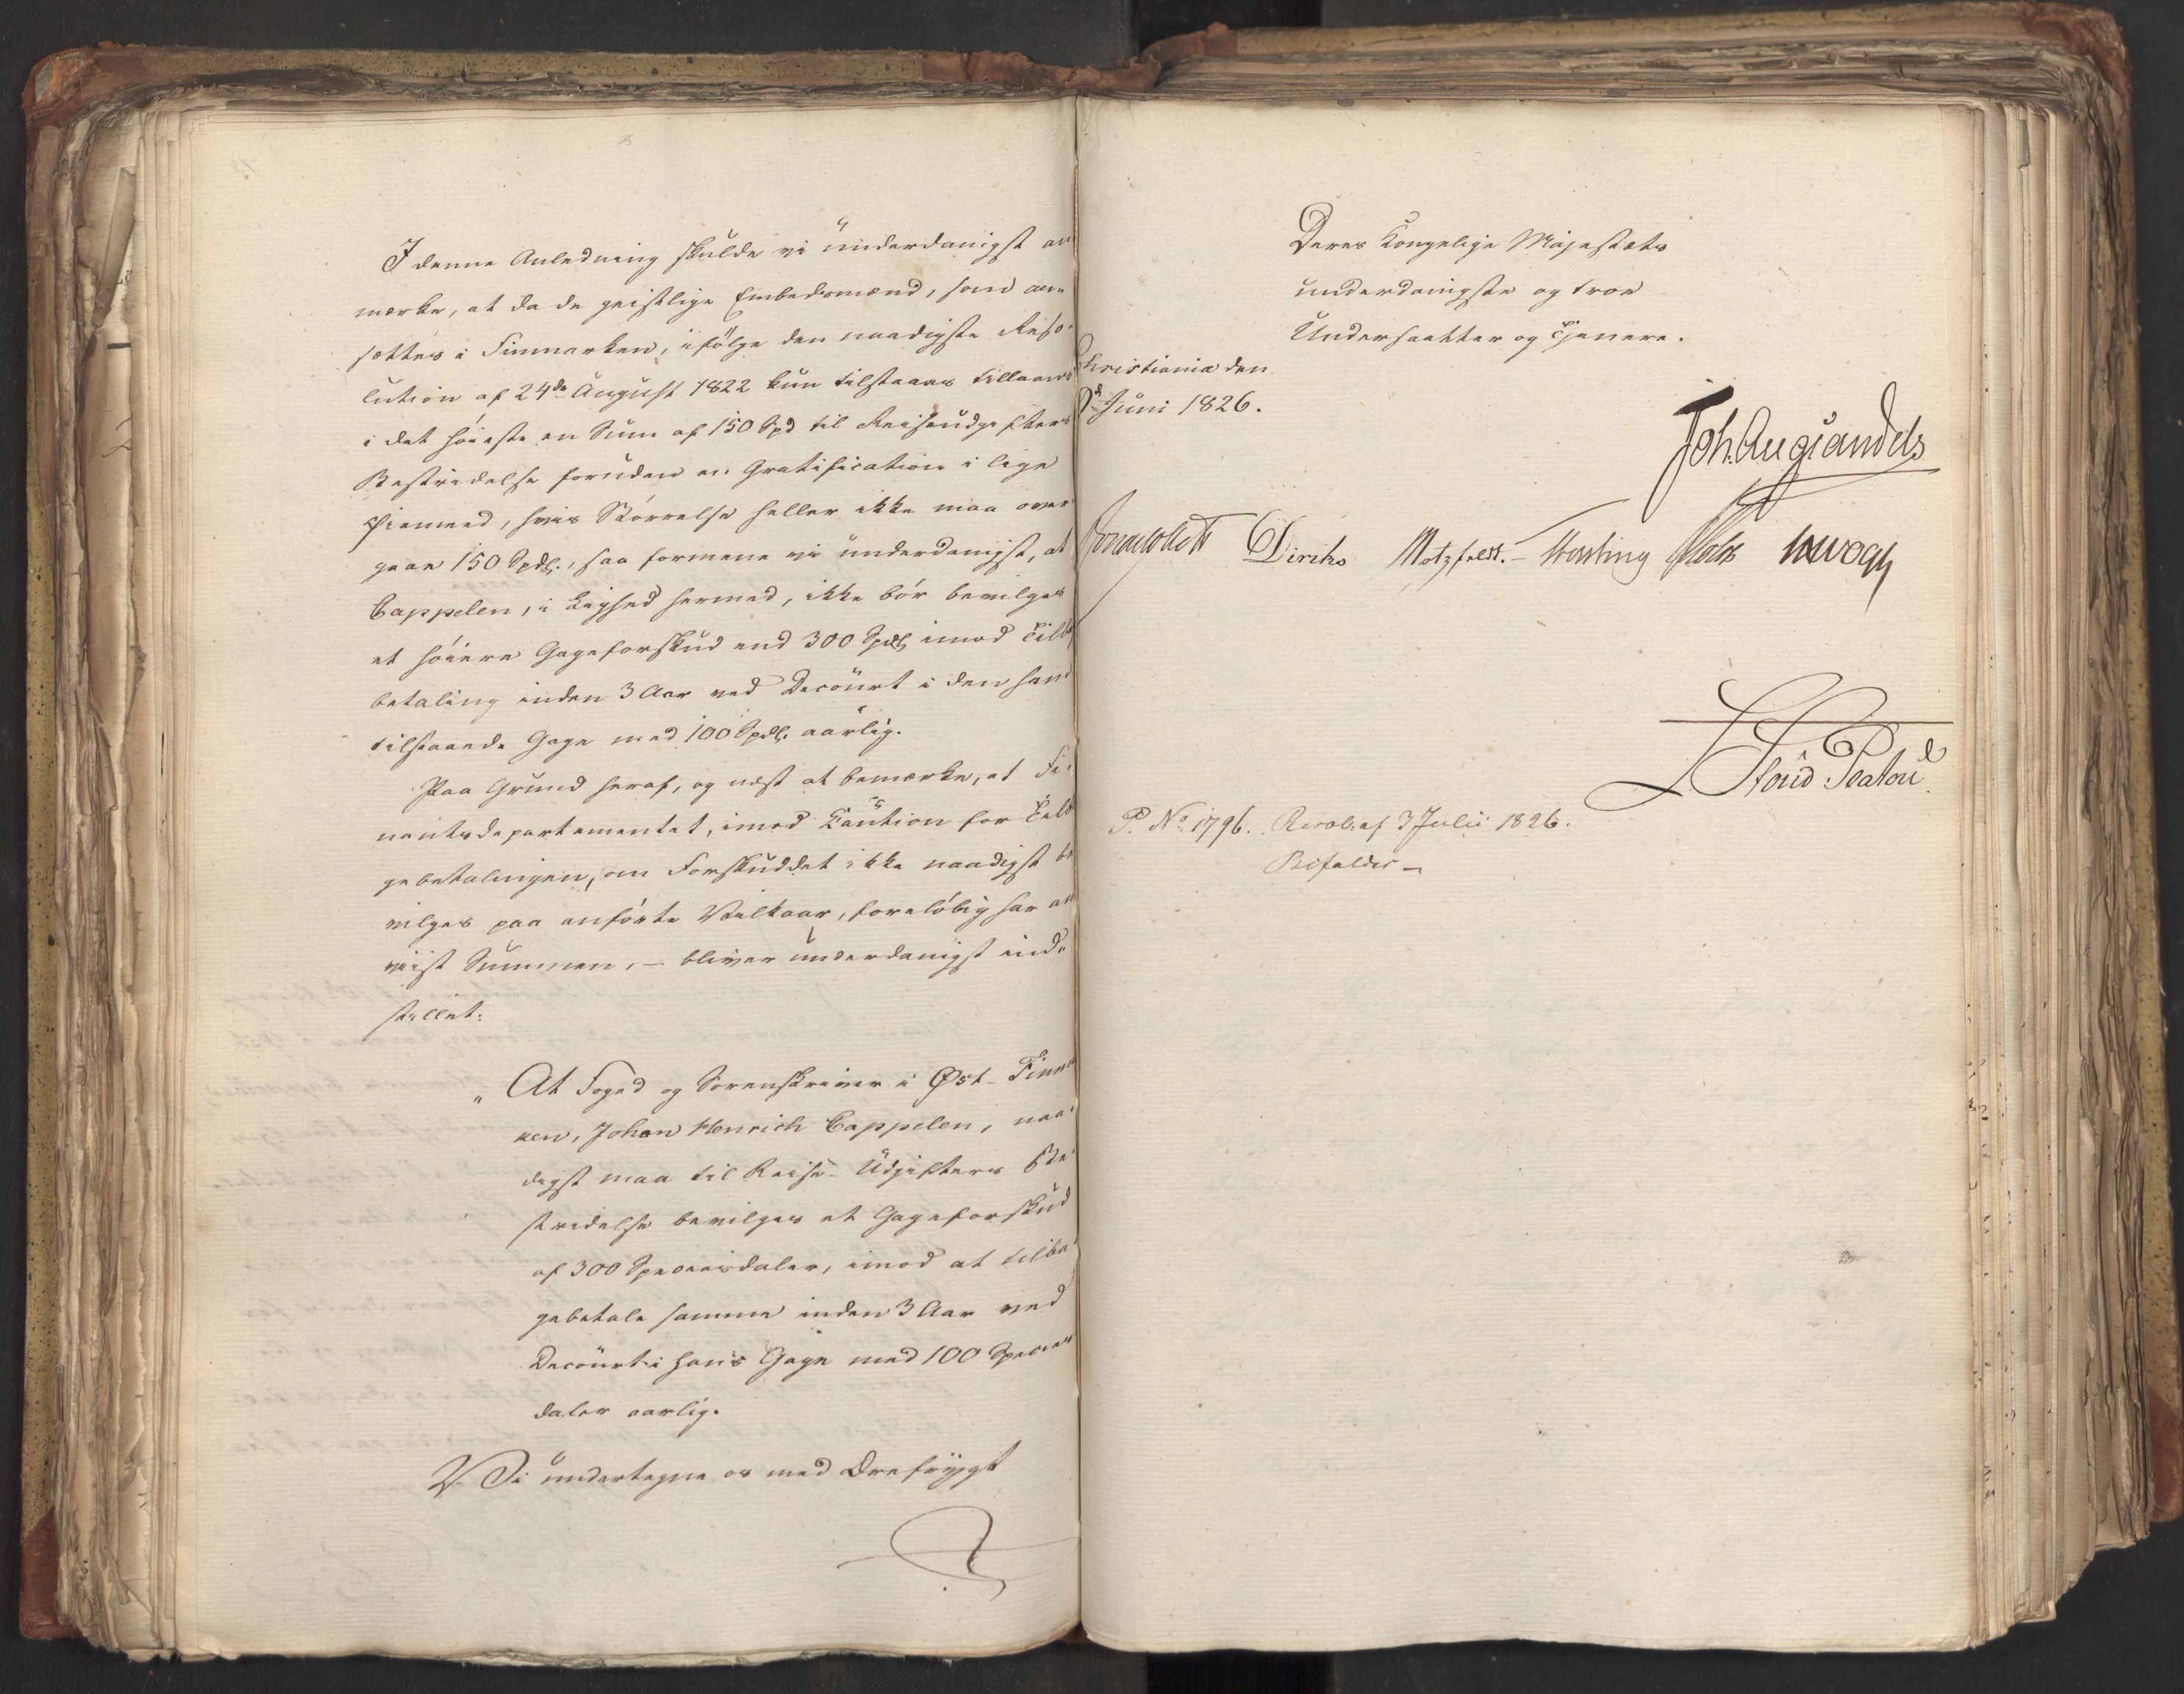 I denne Anledning skulde vi underdanigst an
mærke, at da de geistlige Embedsmænd, som an-
sættes i Finmarken, ifølge den naadigste Reso-
lution af 24de August 1822 kun tilstaaes tillaans
i det høieste en Sum af 150 Spd til Reiseudgifters
Bestridelse foruden en Gratification i lige
Øiemeed, hvis Størrelse heller ikke maa over
gaae 150 Spdlr., saa formene vi underdanigst, at
Cappelen, i Liighed hermed, ikke bør bevilges
et høiere Gageforskud end 300 Spdlr imod Tilba
betaling inden 3 Aar ved Decourt i den ham
tilstaaede Gage med 100 Spdlr. aarlig.
Paa Grund heraf, og næst at bemærke, at Fi-
nantsdepartementet, imod Caution for Tilba
gebetalingen, om Forskuddet ikke naadigst be
vilges paa anførte Vilkaar, foreløbig har an
viist Summen, — bliver underdanigst ind-
stillet:
„ At Foged og Sorenskriver i Øst-Finmar
ken, Johan Henrich Cappelen, naa-
digst maa til Reise-Udgifters Be-
stridelse bevilges et Gageforskud
af 300 Speciesdaler, imod at tilba
gebetale samme inden 3 Aar ved
Decourt i hans Gage med 100 Species
daler aarlig.
Vi undertegne os med Ærefrygt
Deres Kongelige Majestæts
underdanigste og troe
Undersaatter og Tjenere.
Christiania den
Juni 1826.
Joh. Aug. Sandels
Jonas Collett Diriks Motzfeldt. Krog
P. No. 1796. Resol. af 3 Julii 1826.
Bifaldes —